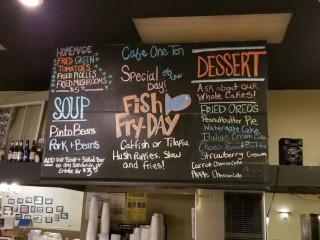 HOMEMADE
FRIED GREEN
TOMATOES
FRIED PICKLES
FRIED MUSHROOMS
$5
SOUP
Pinto Beans
Pork & Beans
ADD our Soup & Salad Bar
to any Sandwich or
Entrée for $3.95
Cafe One Ten
Special of the
day!
Fish
Fry-DAY
Catfish or Tilapia
Hush Puppies, Slaw
and fries!
DESSERT
Ask about our
Whole Cakes!
FRIED OREOS
Peanutbutter Pie
Watergate Cake
Italian Cream Cake
Choco Peanut Butter
Strawberry Cream
Carrot Cheese Cake
Cheese Cake